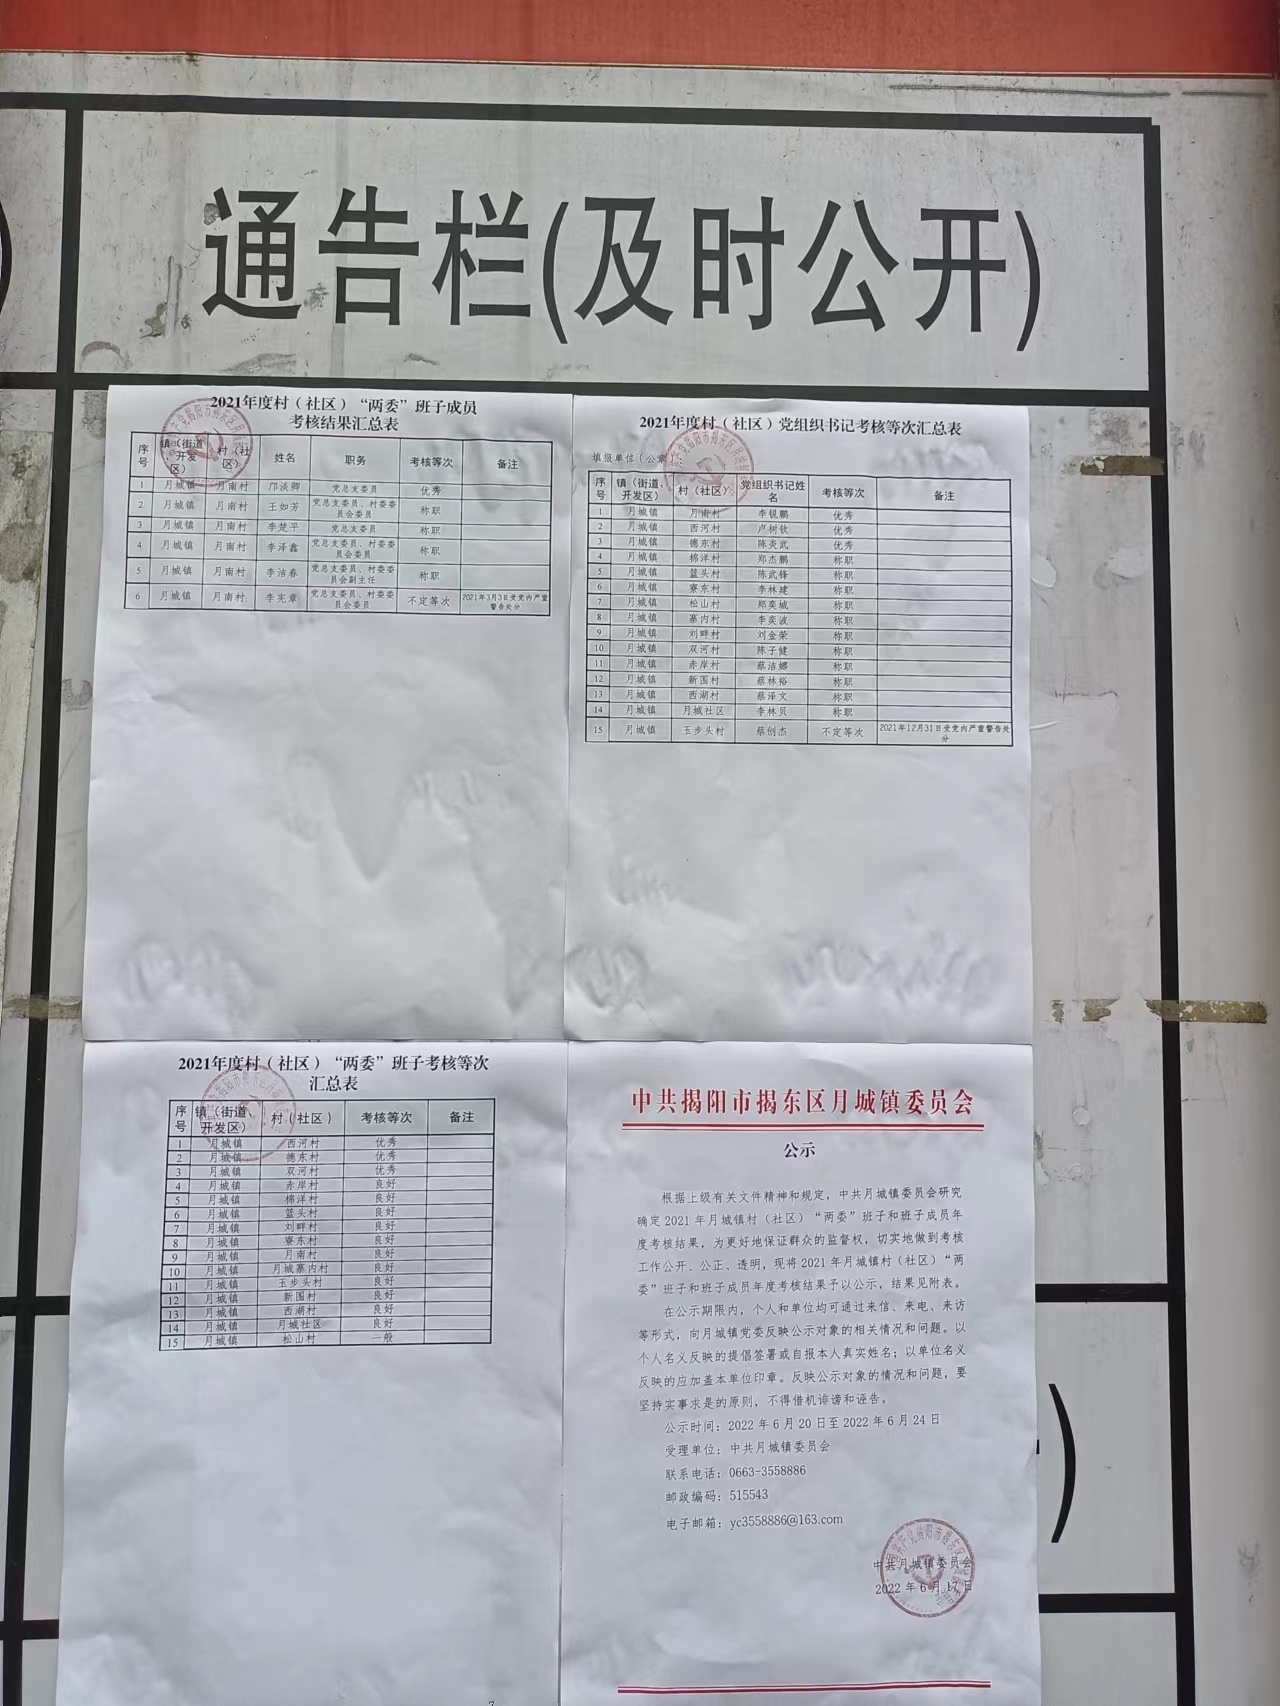 通告栏(及时公开)
2021年度村（社区）“两委”班子成员
考核结果汇总表
序号 镇（街道、开发区） 村（社区） 姓名 职务 考核等次 备注
1 月城镇 月南村 邝淡卿 党总支委员 优秀
2 月城镇 月南村 王如芳 党总支委员、村委委员会委员 称职
3 月城镇 月南村 李楚平 党总支委员 称职
4 月城镇 月南村 李泽鑫 党总支委员、村委委员会委员 称职
5 月城镇 月南村 李洁春 党总支委员、村委委员会副主任 称职
6 月城镇 月南村 李宪章 党总支委员、村委委员会委员 不定等次 2021年3月3日受党内严重警告处分
2021年度村（社区）党组织书记考核等次汇总表
填报单位（公章
序号 镇（街道、开发区） 村（社区） 党组织书记姓名 考核等次 备注
1 月城镇 月南村 李锐鹏 优秀
2 月城镇 西河村 卢树钦 优秀
3 月城镇 德东村 陈炎武 优秀
4 月城镇 棉洋村 郑杰鹏 称职
5 月城镇 篮头村 陈武锋 称职
6 月城镇 寮东村 李林建 称职
7 月城镇 松山村 郑奕城 称职
8 月城镇 寨内村 李奕波 称职
9 月城镇 刘畔村 刘金荣 称职
10 月城镇 双河村 陈子健 称职
11 月城镇 赤岸村 蔡洁娜 称职
12 月城镇 新围村 蔡林裕 称职
13 月城镇 西湖村 蔡泽文 称职
14 月城镇 月城社区 李林贝 称职
15 月城镇 玉步头村 蔡创杰 不定等次 2021年12月31日受党内严重警告处分
2021年度村（社区）“两委”班子考核等次
汇总表
序号 镇（街道、开发区） 村（社区） 考核等次 备注
1 月城镇 西河村 优秀
2 月城镇 德东村 优秀
3 月城镇 双河村 优秀
4 月城镇 赤岸村 良好
5 月城镇 棉洋村 良好
6 月城镇 篮头村 良好
7 月城镇 刘畔村 良好
8 月城镇 寮东村 良好
9 月城镇 月南村 良好
10 月城镇 月城寨内村 良好
11 月城镇 玉步头村 良好
12 月城镇 新围村 良好
13 月城镇 西湖村 良好
14 月城镇 月城社区 良好
15 月城镇 松山村 一般
中共揭阳市揭东区月城镇委员会
公示
根据上级有关文件精神和规定，中共月城镇委员会研究
确定2021年月城镇村（社区）“两委”班子和班子成员年
度考核结果，为更好地保证群众的监督权，切实地做到考核
工作公开、公正、透明，现将2021年月城镇村（社区）“两
委”班子和班子成员年度考核结果予以公示，结果见附表。
在公示期限内，个人和单位均可通过来信、来电、来访
等形式，向月城镇党委反映公示对象的相关情况和问题。以
个人名义反映的提倡签署或自报本人真实姓名；以单位名义
反映的应加盖本单位印章。反映公示对象的情况和问题，要
坚持实事求是的原则，不得借机诽谤和诬告。
公示时间：2022年6月20日至2022年6月24日
受理单位：中共月城镇委员会
联系电话：0663-3558886
邮政编码：515543
电子邮箱：yc3558886@163.com
中共月城镇委员会
2022年6月17日